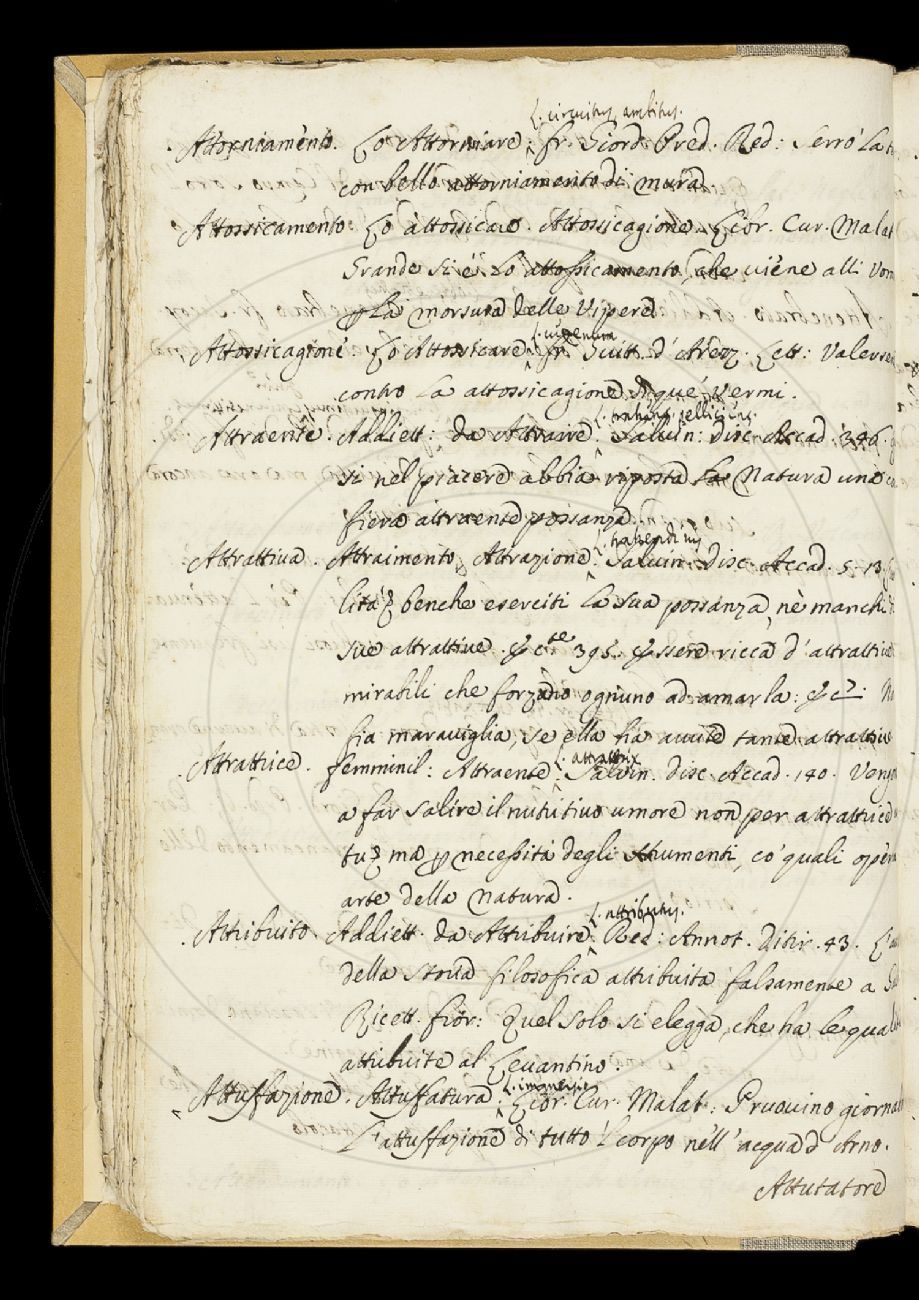 L. circuitus, ambitus.
Attorniamento. Lo Attorniare. fr. Giord. Pred. Red: Serrò La
con bello attorniamento di mura.
Attossicamento: Lo attossicare. Attossicagione. Libr. Cur. Malat
Grande si è Lo attossicamento, che viene alli
p La morsura delle Vipere.
Attossicagione Lo Attossicare. fr. Guitt. d'Arezz. Lett: Valevse
contro La attossicagione di que' vermi.
L. trahens, alliciens.
Attraente. Addiett: da Attrarre. Salvin: disc. Accad. 346.
si nel piacere abbia riposta La Natura una
fiera attraente possanza.
L. trahendi vis
Attrattiva. Attraimento, Attrazione. Salvin. Disc. Accad. 5. 13.
lità benche eserciti La sua possanza, nè manchi
sue attrattive. & cte 395. Essere ricca d'attrattive
mirabili che forzano ognuno ad amarla: & c.
fia maraviglia, se ella ha avute tante attrattive
L. attractrix
Attrattice. femminil: Attraente. Salvin. disc. Accad. 140.
a far salire il nutritivo umore non per attrattice
tù, ma p necessità degli strumenti, co' quali opera
arte della Natura.
L. attributus.
Attribuito. Addiett. da Attribuire. Red: Annot. Ditir. 43.
della storia filosofica attribuita falsamente a
Ricett. fior: Quel solo si elegga, che ha le qua
attribuite al Levantino.
L. immersio
Attuffazione. Attuffatura. Libr. Cur. Malat: Pruovino
L'attuffazione di tutto 'l corpo nell'acqua d'Arno.
Attutatore